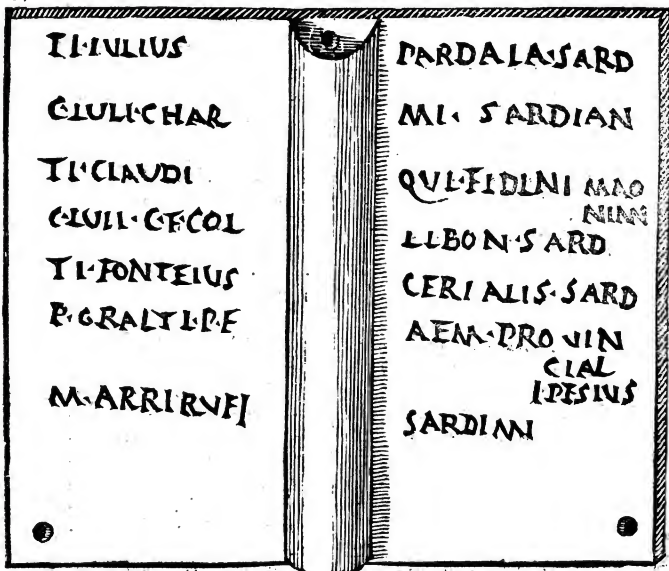 TI·IULIUS
C·IULI·CHAR
TI·CLAUDI
C·IULI·C·F·COL
TI·FONTEIUS
P·GRALTI·P·F
M·ARRI RUFI
PARDALA·SARD
MI· SARDIAN
QVI·FIDINI MAO
NIAN
LIBON·SARD
CERIALIS·SARD
AEM·PROVIN
CIAL
IPESIUS
SARDIAN